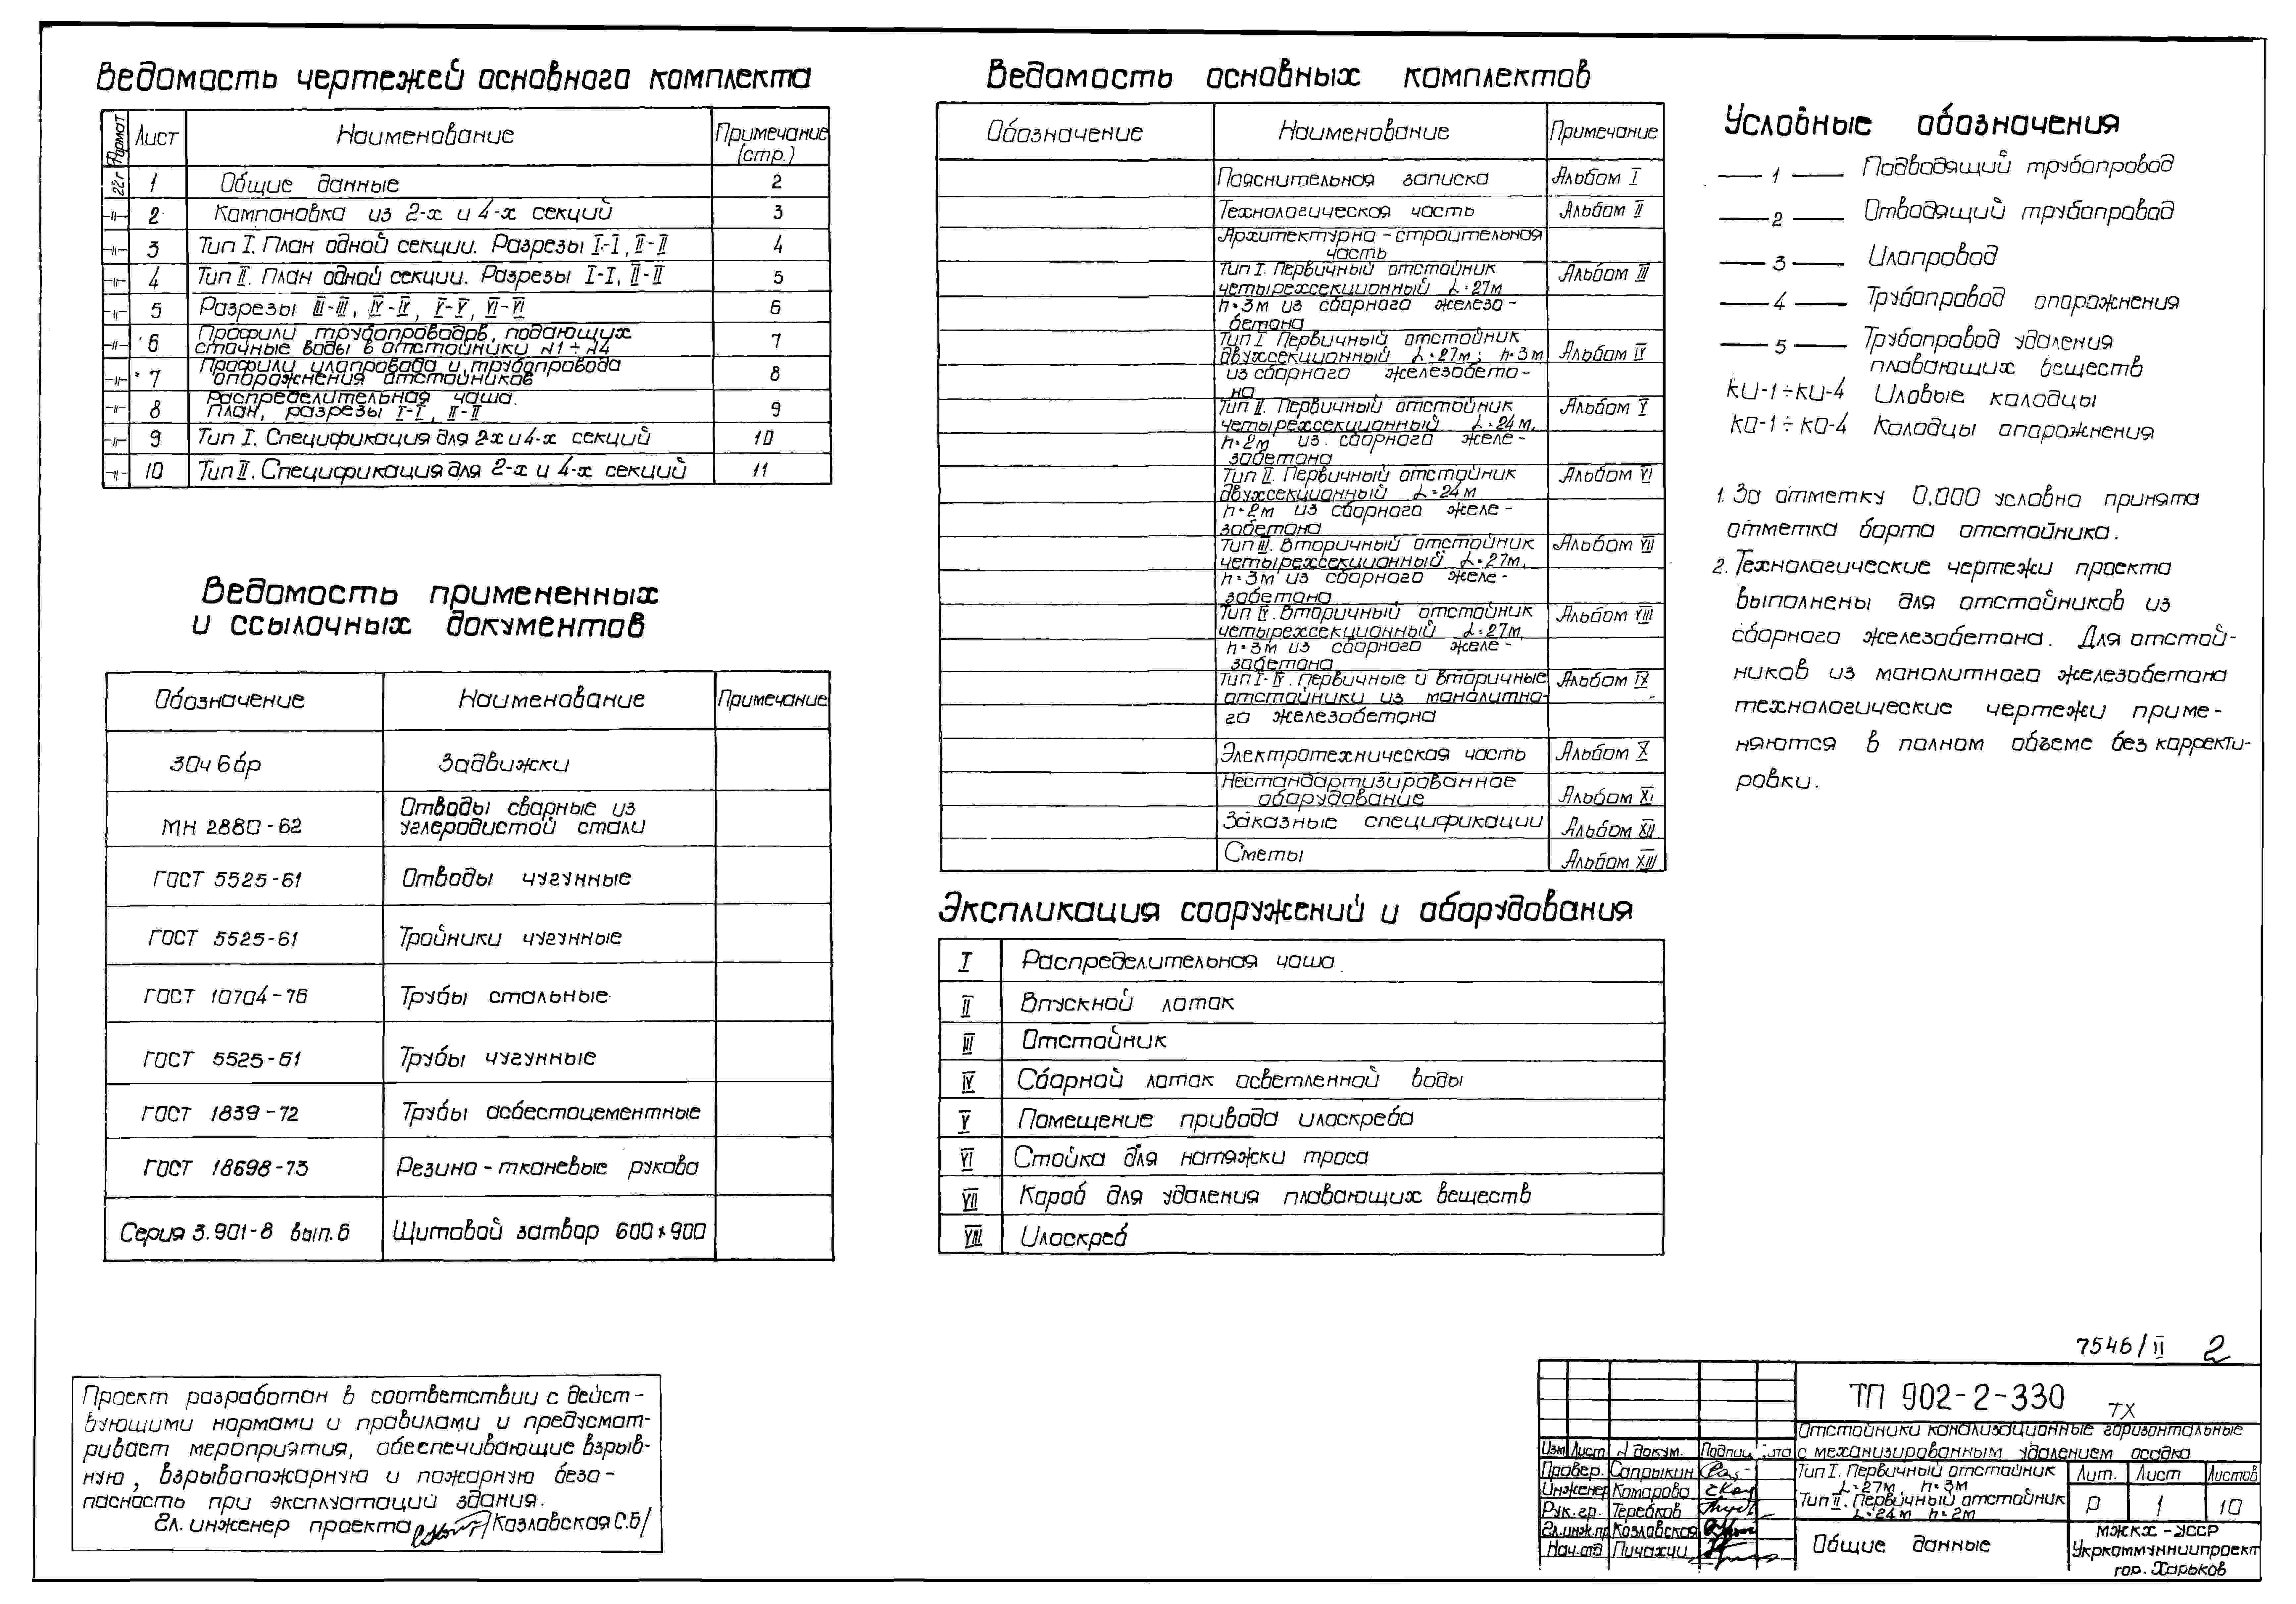 Ведомость чертежей основного комплекта
Формат Лист Наименование Примечание (стр.)
22г 1 Общие данные 2
-||- 2 Компоновка из 2-х и 4-х секций 3
-||- 3 Тип I. План одной секции. Разрезы I-I, II-II 4
-||- 4 Тип II. План одной секции. Разрезы I-I, II-II 5
-||- 5 Разрезы III-III, IV-IV, V-V, VI-VI 6
-||- 6 Профили трубопроводов, подающих
сточные воды в отстойники N1÷N4 7
-||- 7 Профили илопровода и трубопровода
опорожнения отстойников 8
-||- 8 Распределительная чаша.
План, разрезы I-I, II-II 9
-||- 9 Тип I. Спецификация для 2х и 4-х секций 10
-||- 10 Тип II. Спецификация для 2-х и 4-х секций 11
Ведомость примененных
и ссылочных документов
Обозначение Наименование Примечание
30ч 6бр Задвижки
МН 2880-62 Отводы сварные из
углеродистой стали
ГОСТ 5525-61 Отводы чугунные
ГОСТ 5525-61 Тройники чугунные
ГОСТ 10704-76 Трубы стальные
ГОСТ 5525-61 Трубы чугунные
ГОСТ 1839-72 Трубы асбестоцементные
ГОСТ 18698-73 Резино-тканевые рукава
Серия 3.901-8 вып.6 Щитовой затвор 600×900
Проект разработан в соответствии с дейст-
вующими нормами и правилами и предусмат-
ривает мероприятия, обеспечивающие взрыв-
ную, взрывопожарную и пожарную безо-
пасность при эксплуатаций здания.
Гл. инженер проекта /Козловская С.Б/
Ведомость основных комплектов
Обозначение Наименование Примечание
Пояснительная записка Альбом I
Технологическая часть Альбом II
Архитектурно-строительная
часть
Тип I. Первичный отстойник Альбом III
четырехсекционный L=27м
h=3м из сборного железо-
бетона
Тип I Первичный отстойник
двухсекционный L=27м; h=3м Альбом IV
из сборного железобето-
на
Тип II. Первичный отстойник Альбом V
четырехсекционный L=24м,
h=2м из сборного желе-
зобетона
Тип II. Первичный отстойник Альбом VI
двухсекционный L=24м
h=2м из сборного желе-
зобетона
Тип III. Вторичный отстойник Альбом VII
четырехсекционный L=27м,
h=3м из сборного желе-
зобетона
Тип IV. Вторичный отстойник Альбом VIII
четырехсекционный L=27м,
h=3м из сборного желе-
зобетона
Тип I-IV. Первичные и вторичные Альбом IX
отстойники из монолитно-
го железобетона
Электротехническая часть Альбом X
Нестандартизированное
оборудование Альбом XI
Заказные спецификации Альбом XII
Сметы Альбом XIII
Экспликация сооружений и оборудования
I Распределительная чаша
II Впускной лоток
III Отстойник
IV Сборной лоток осветленной воды
V Помещение привода илоскреба
VI Стойка для натяжки троса
VII Короб для удаления плавающих веществ
VIII Илоскреб
Условные обозначения
1 Подводящий трубопровод
2 Отводящий трубопровод
3 Илопровод
4 Трубопровод опорожнения
5 Трубопровод удаления
плавающих веществ
КИ-1÷КИ-4 Иловые колодцы
КО-1÷КО-4 Колодцы опорожнения
1. За отметку 0,000 условно принята
отметка борта отстойника.
2. Технологические чертежи проекта
выполнены для отстойников из
сборного железобетона. Для отстой-
ников из монолитного железобетона
технологические чертежи приме-
няются в полном объеме без корректи-
ровки.
7546/II 2
ТП 902-2-330 ТХ
Отстойники канализационные горизонтальные
с механизированным удалением осадка
Изм Лист N докум. Подпись
Провер. Сапрыкин
Инженер Комарова
Рук. гр. Теребков
Гл.инж.пр Козловская
Нач.отд Пичахчи
Тип I. Первичный отстойник
L=27м, h=3м
Тип II. Первичный отстойник
L=24м h=2м
Лит. Лист Листов
Р 1 10
Общие данные
МЖКХ-УССР
Укркоммунниипроект
гор. Харьков